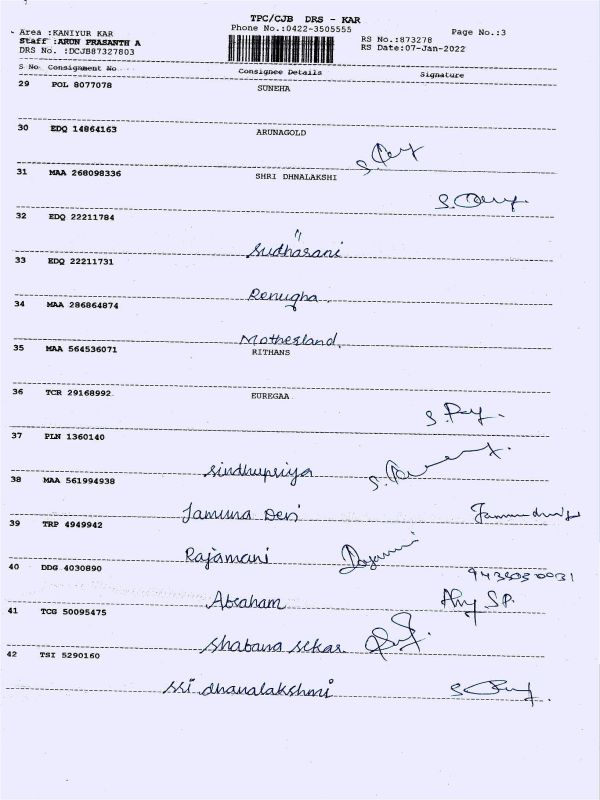 TPC/CJB DRS - KAR
Area :KANIYUR KAR
Phone No.:0422-3505555
Page No.:3
Staff :ARUN PRASANTH A
RS No.:873278
DRS No. :DCJB87327803
RS Date:07-Jan-2022
S No Consignment No Consignee Details Signature
29 POL 8077078 SUNEHA
30 EDQ 14864163 ARUNAGOLD
31 MAA 268098336 SHRI DHNALAKSHI
32 EDQ 22211784
"
Sudharani
33 EDQ 22211731
Renugha
34 MAA 286864874
Motherland.
35 MAA 564536071 RITHANS
36 TCR 29168992 EUREGAA
37 PLN 1360140
Sindhupriya
38 MAA 561994938
Jamuna Devi
39 TRP 4949942
Rajamani
40 DDG 4030890
Abraham
41 TCG 50095475
Shabana Sekar.
42 TSI 5290160
Sri dhanalakshmi